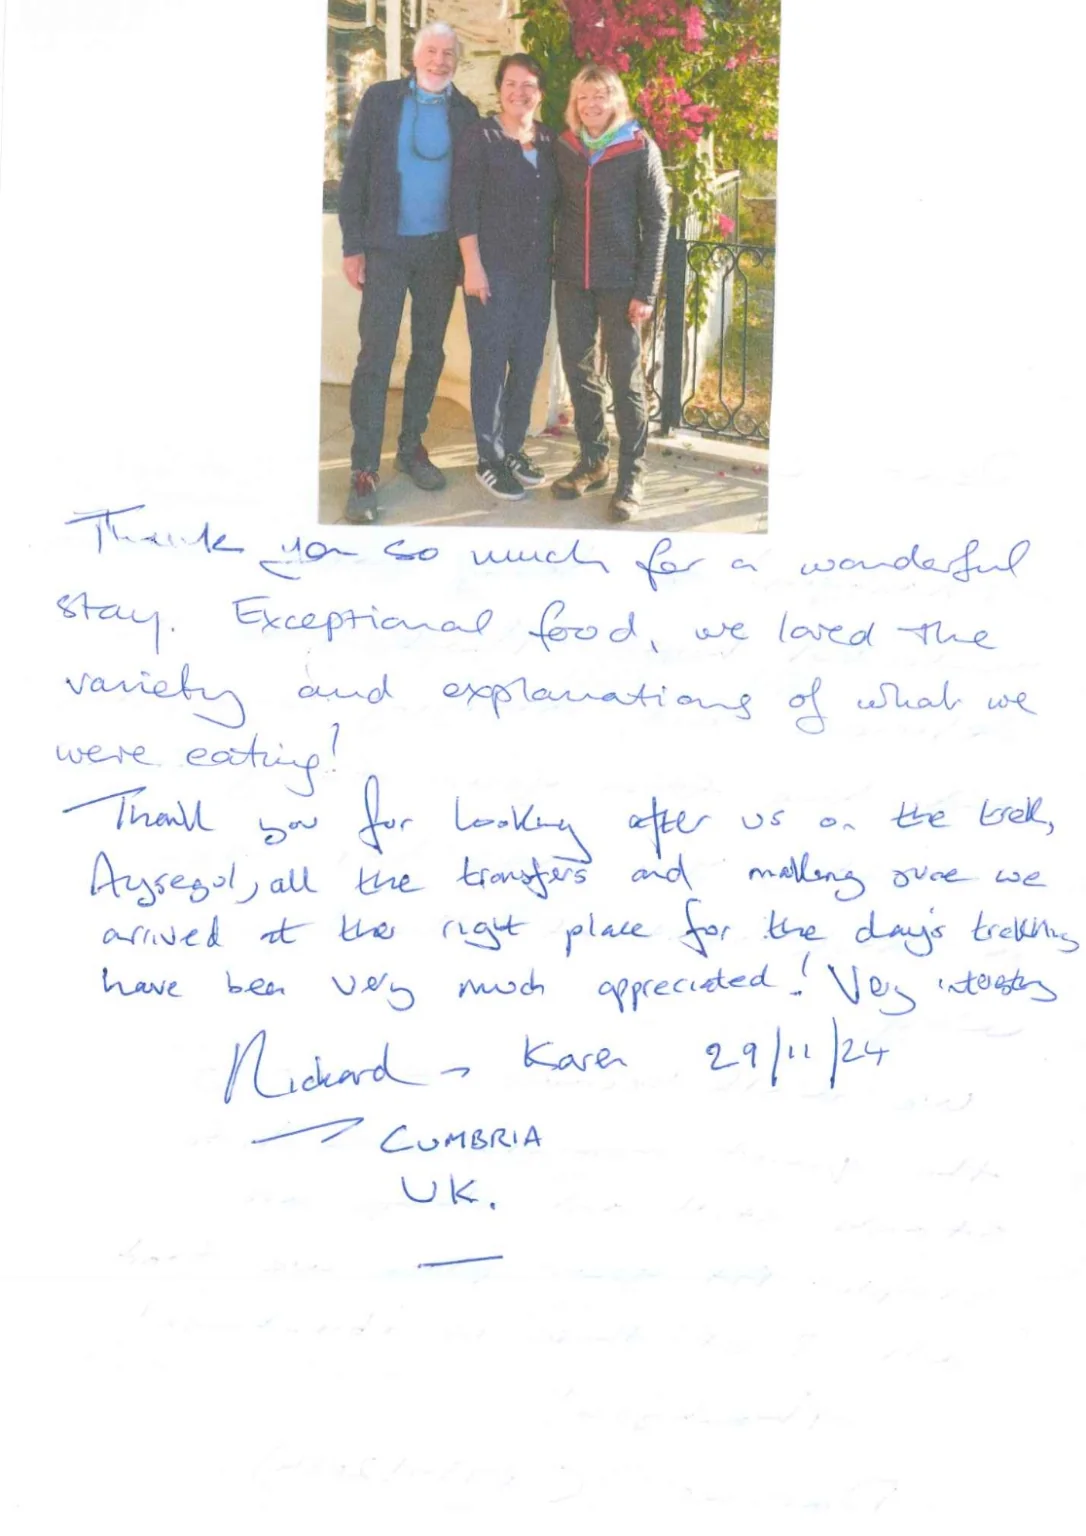 Thank you so much for a wonderful
stay. Exceptional food, we loved the
variety and explanations of what we
were eating!
Thank you for looking after us on the trek,
Aysegul, all the transfers and making sure we
arrived at the right place for the day's trekking
have been very much appreciated! Very interesting
Richard & Karen 29/11/24
CUMBRIA
UK.